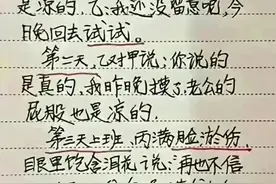 是凉的，乙：我还没留意呢，今
晚回去试试。
第二天，乙对甲说：你说的
是真的，我昨晚摸了老公的
屁股也是凉的，
第三天上班，丙满脸淤伤，
眼里饱含泪花说：再也不信